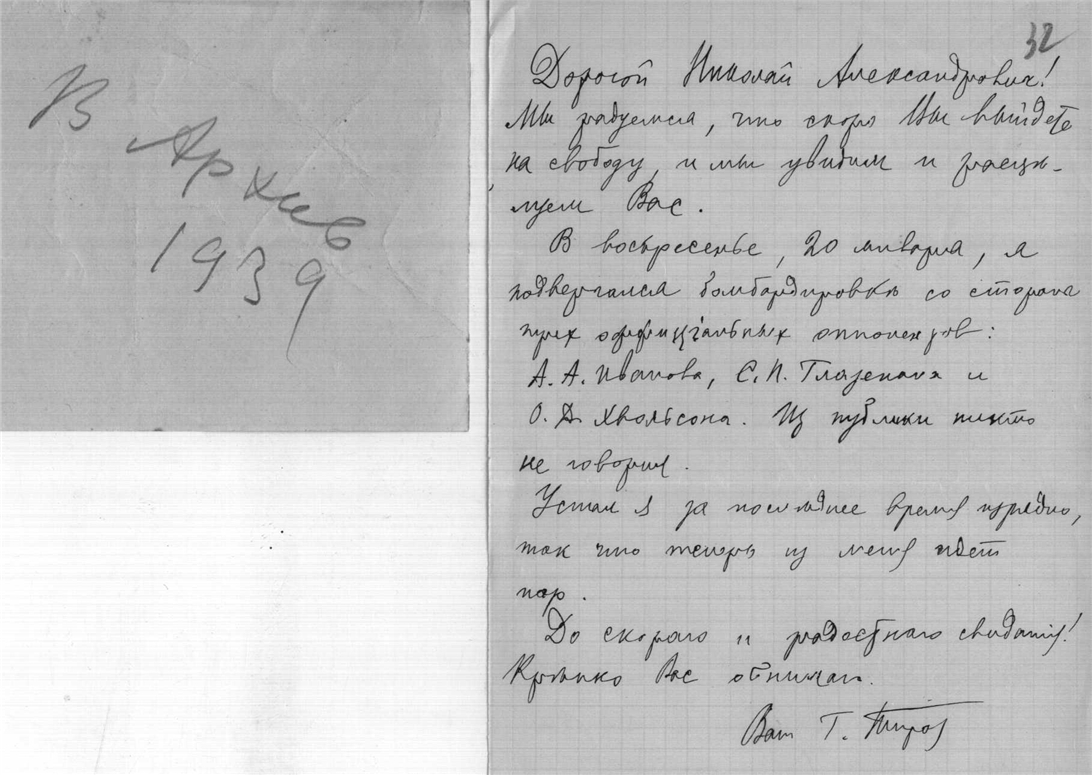 В
Архив
1939
32
Дорогой Николай Александрович!
Мы радуемся, что скоро Вы выйдете
на свободу, и мы увидим и расцѣ-
луем Вас.
В воскресенье, 20 января, я
подвергался бомбардировкѣ со стороны
трех оффиціальных оппонентов:
А. А. Иванова, С. П. Глазенапа и
О. Д. Хвольсона. Из публики никто
не говорил.
Устал я за последнее время изрядно,
так что теперь из меня идет
пар.
До скораго и радостнаго свиданія!
Крѣпко Вас обнимаю.
Ваш Г. Тихов